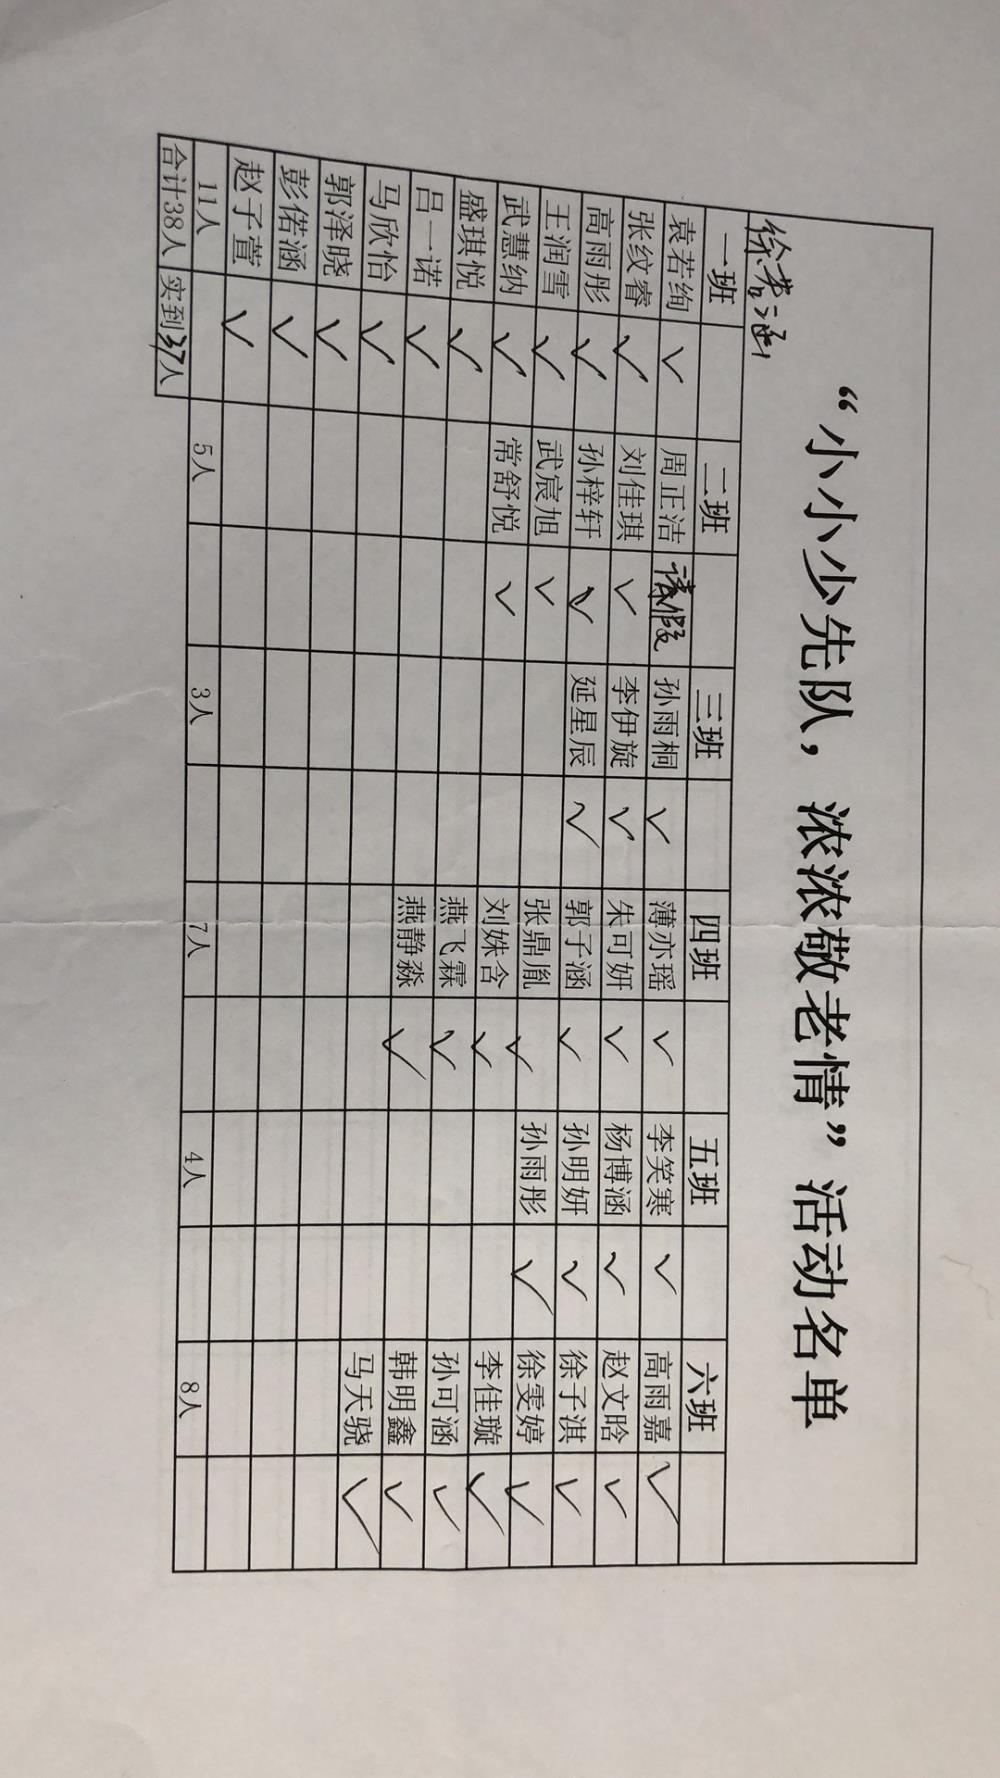 “小小少先队，浓浓敬老情”活动名单
徐若涵
一班 二班 三班 四班 五班 六班
袁若绚 ✓ 周正洁 请假 孙雨桐 ✓ 薄亦瑶 ✓ 李笑寒 ✓ 高雨嘉 ✓
张纹睿 ✓ 刘佳琪 ✓ 李伊旋 ✓ 朱可妍 ✓ 杨博涵 ✓ 赵文晗 ✓
高雨彤 ✓ 孙梓轩 ✓ 延星辰 ✓ 郭子涵 ✓ 孙明妍 ✓ 徐子淇 ✓
王润雪 ✓ 武宸旭 ✓ 张鼎胤 ✓ 孙雨彤 ✓ 徐雯婷 ✓
武慧纳 ✓ 常舒悦 ✓ 刘姝含 ✓ 李佳璇 ✓
盛琪悦 ✓ 燕飞霖 ✓ 孙可涵 ✓
吕一诺 ✓ 燕静淼 ✓ 韩明鑫 ✓
马欣怡 ✓ 马天骁 ✓
郭泽晓 ✓
彭偌涵 ✓
赵子萱 ✓
11人 5人 3人 7人 4人 8人
合计38人 实到37人